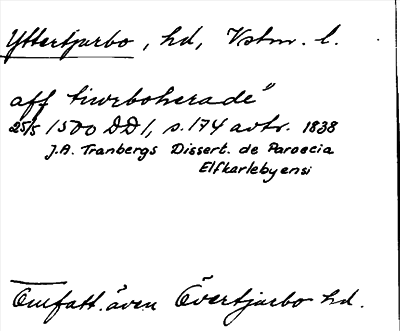 Yttertjurbo, hd, Vstm. l.
aff tiwrboherade"
25/5 1500 DD1, s. 174 avtr. 1838
J.A. Tranbergs Dissert. de Paroecia
Elfkarlebyensi
Omfatt. även Övertjurbo hd.